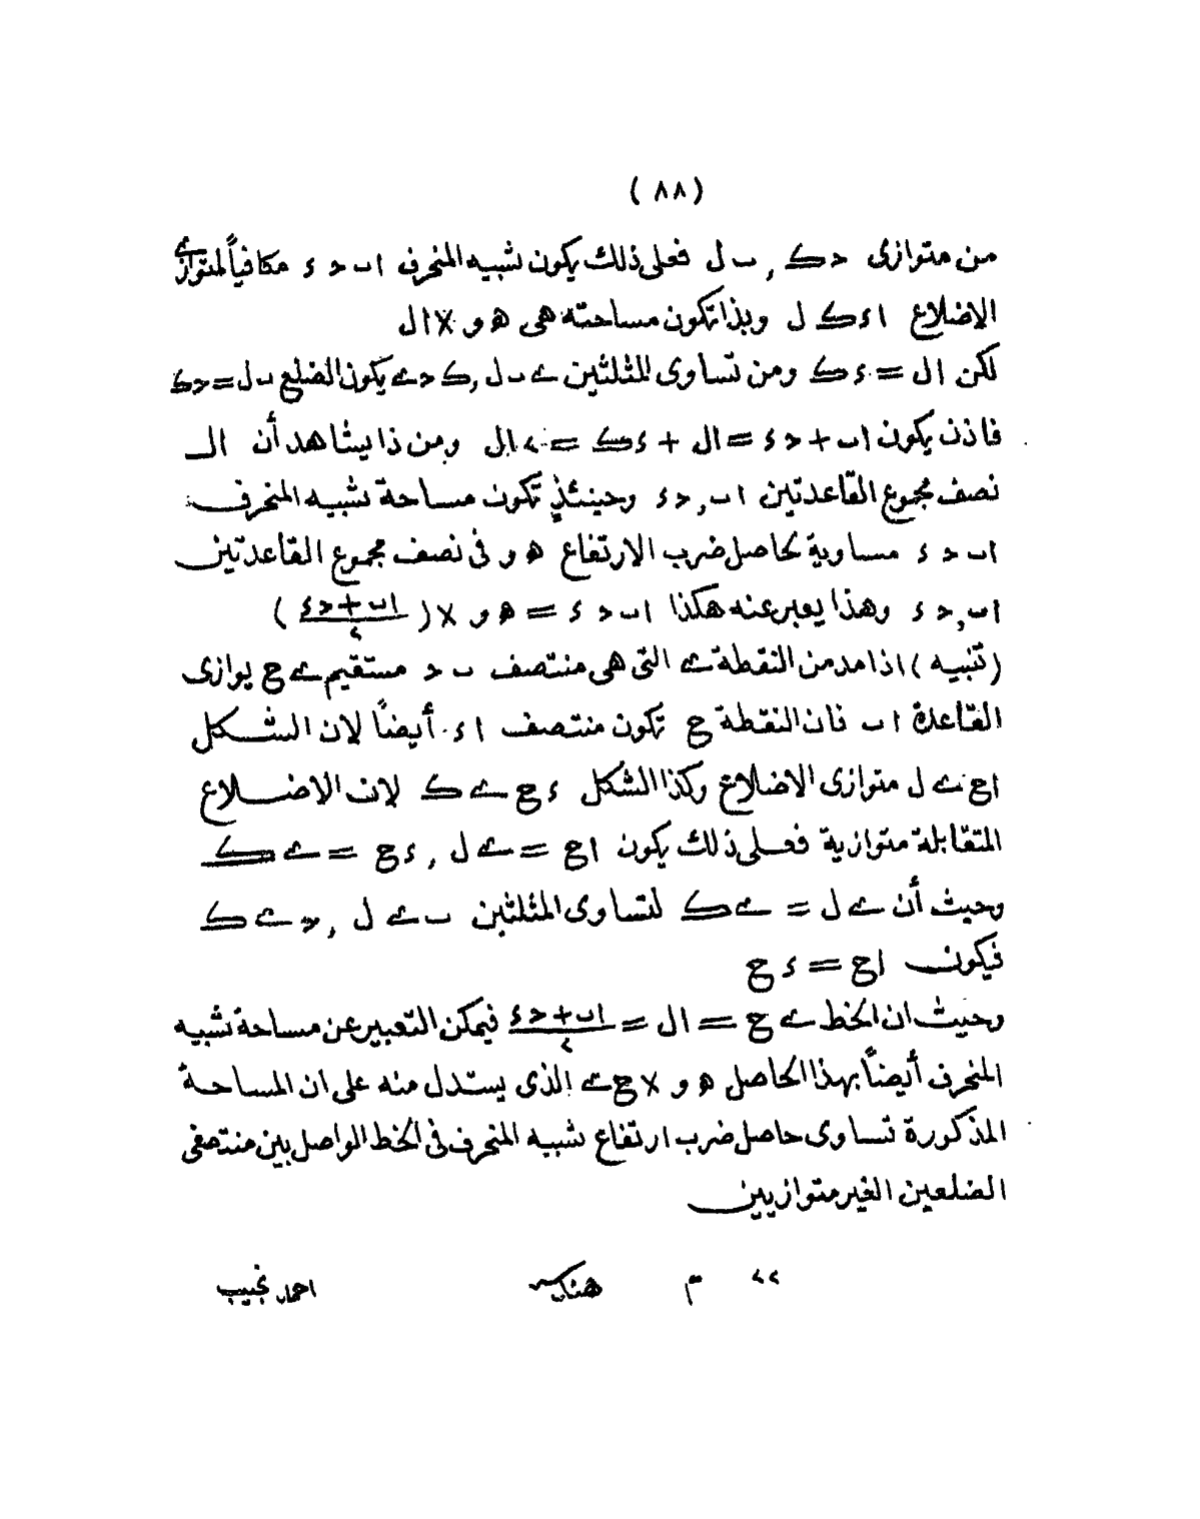 (٨٨)
من متوازى حك , ب ل فعلى ذلك يكون شبيه المنحرف اب ح ء مكافياً لمتوازى
الاضلاع ا ء ك ل وبذا تكون مساحته هى ه و × ال
لكن ال = ء ك ومن تساوى المثلثين ے ب ل , ك ح ے يكون الضلع ب ل = ح ك
فاذن يكون اب + ح ء = ال + ء ك = ٢ ال ومن ذا يشاهد أن ال
نصف مجموع القاعدتين اب , ح ء وحينئذٍ تكون مساحة شبيه المنحرف
اب ح ء مساوية لحاصل ضرب الارتفاع ه و فى نصف مجموع القاعدتين
اب , ح ء وهذا يعبر عنه هكذا اب ح ء = ه و × (اب + ح ء / ٢)
(تنبيه) اذا مد من النقطة ے التى هى منتصف ب ح مستقيم ے ج يوازى
القاعدة اب فان النقطة ج تكون منتصف ا ء أيضاً لان الشكل
اج ے ل متوازى الاضلاع وكذا الشكل ء ج ے ك لان الاضلاع
المتقابلة متوازية فعلى ذلك يكون اج = ے ل , ء ج = ے ك
وحيث أن ے ل = ے ك لتساوى المثلثين ب ے ل , ح ے ك
فيكون اج = ء ج
وحيث ان الخط ے ج = ال = اب + ح ء / ٢ فيمكن التعبير عن مساحة شبيه
المنحرف أيضاً بهذا الحاصل ه و × ج ے الذى يستدل منه على ان المساحة
المذكورة تساوى حاصل ضرب ارتفاع شبيه المنحرف فى الخط الواصل بين منتصفى
الضلعين الغير متوازيين
٢٢ م هندسه احمد نجيب